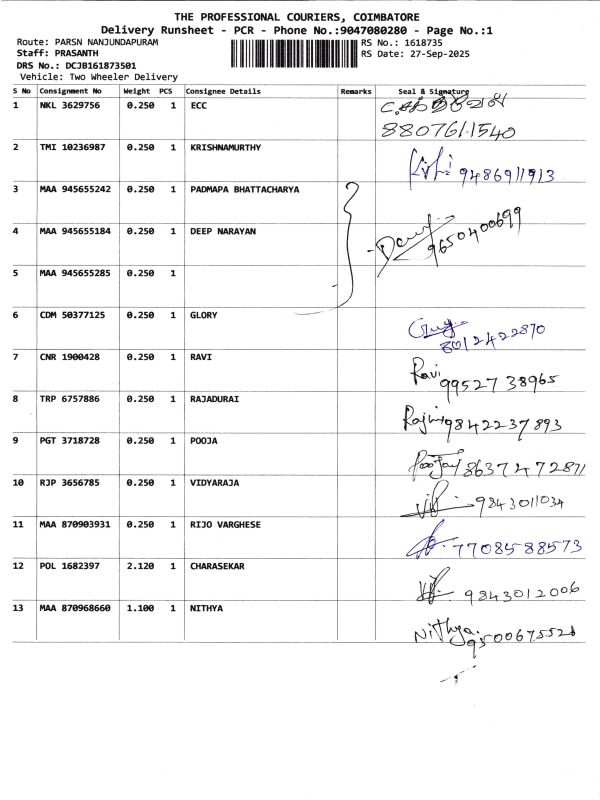 THE PROFESSIONAL COURIERS, COIMBATORE
Delivery Runsheet - PCR - Phone No.:9047080280 - Page No.:1
Route: PARSN NANJUNDAPURAM RS No.: 1618735
Staff: PRASANTH RS Date: 27-Sep-2025
DRS No.: DCJB161873501
Vehicle: Two Wheeler Delivery
S No Consignment No Weight PCS Consignee Details Remarks Seal & Signature
1 NKL 3629756 0.250 1 ECC
8807611540
2 TMI 10236987 0.250 1 KRISHNAMURTHY 9486911913
3 MAA 945655242 0.250 1 PADMAPA BHATTACHARYA
4 MAA 945655184 0.250 1 DEEP NARAYAN 9650400699
5 MAA 945655285 0.250 1
6 CDM 50377125 0.250 1 GLORY 8012422870
7 CNR 1900428 0.250 1 RAVI Ravi 9952738965
8 TRP 6757886 0.250 1 RAJADURAI 9842237893
9 PGT 3718728 0.250 1 POOJA 8637472871
10 RJP 3656785 0.250 1 VIDYARAJA 9843011034
11 MAA 870903931 0.250 1 RIJO VARGHESE 7708588573
12 POL 1682397 2.120 1 CHARASEKAR 9843012006
13 MAA 870968660 1.100 1 NITHYA Nithya. 9500675521